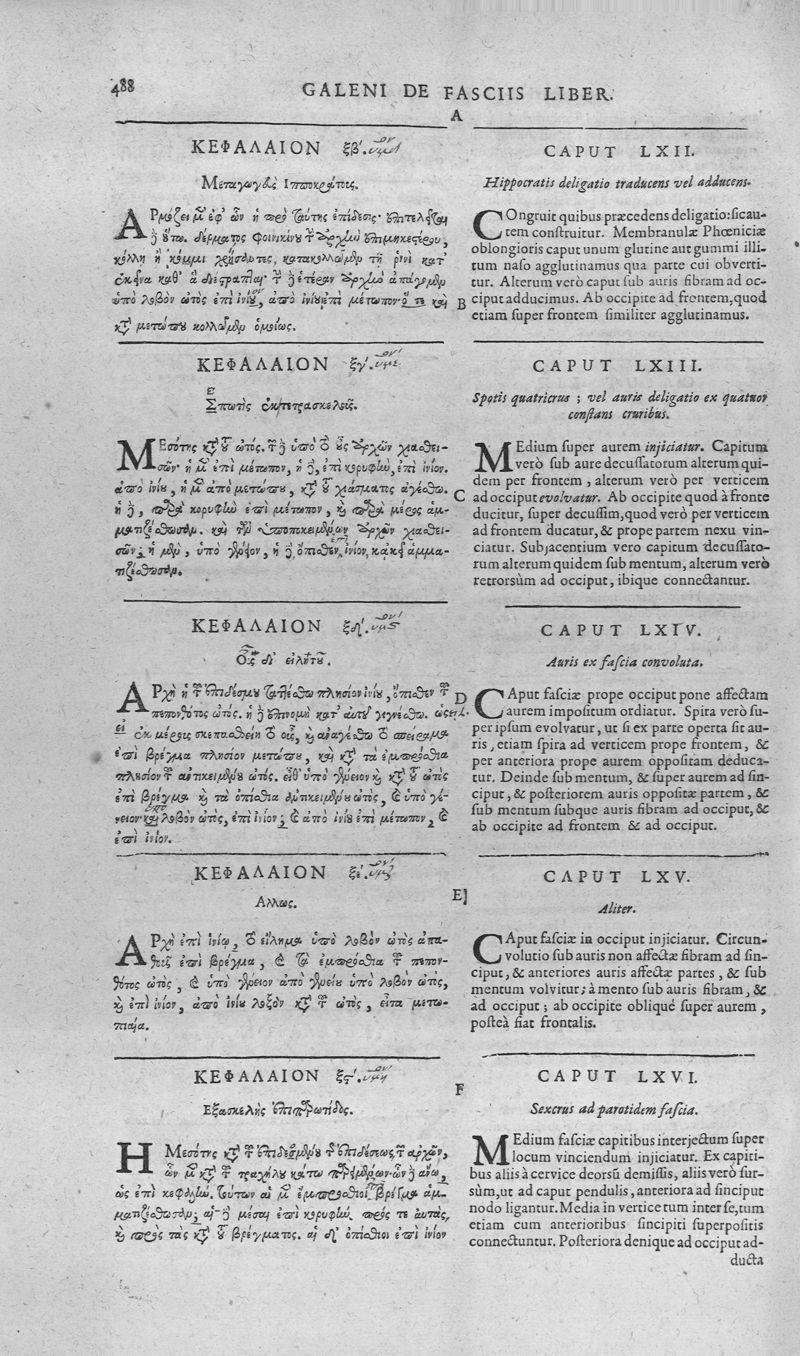 488
GALENI DE FASCIIS LIBER.
A
ΚΕΦΑΛΑΙΟΝ ξβ΄.
Μεταγωγὸς Ἱπποκράτους.
ΑΡμόζει μὲν ἐφ᾽ ὧν ἡ πρὸ ταύτης ἐπίδεσις·
δέρματος φοινικίνου τὴν ἀρχὴν ἐπιμηκεστέρου,
κόλλῃ ἢ κόμμι χρήσαντες, κατακολλῶμεν τῇ ῥινὶ κατ᾽
ὑπὸ λοβὸν ὠτὸς ἐπὶ ἰνίον, ἀπὸ ἰνίου ἐπὶ μέτωπον·
μετώπου κολλῶμεν ὁμοίως.
ΚΕΦΑΛΑΙΟΝ ξγ΄.
Σπωτὴς ἐκ τετρασκελοῦς.
ΜΕσότης
ἡ μὲν ἐπὶ μέτωπον, ἡ δὲ, ἐπὶ κορυφὴν, ἐπὶ ἰνίον.
ἀπὸ ἰνίου, ἡ μὲν ἀπὸ μετώπου,
ἡ δὲ, παρὰ κορυφὴν ἐπὶ μέτωπον, καὶ παρὰ μέρος ἁμ-
ματιζέσθωσαν. καὶ τῶν ὑποκειμένων ἀρχῶν χιασθει-
σῶν, ἡ μὲν, ὑπὸ γένειον, ἡ δὲ ὄπισθεν ἰνίον, κἀκεῖ ἁμμα-
τιζέσθωσαν.
ΚΕΦΑΛΑΙΟΝ ξδ΄.
Οὖς δι᾽ εἰλητοῦ.
ΑΡχὴ ἡ τοῦ ἐπιδέσμου τασσέσθω πλησίον ἰνίου, ὄπισθεν τοῦ
πεπονθότος ὠτός. ἡ δὲ ἐπινομὴ κατ᾽ αὐτοῦ γινέσθω.
ἐπὶ βρέγμα πλησίον μετώπου, καὶ κατὰ τὰ ἐμπρόσθια
πλησίον τοῦ ἀντικειμένου ὠτός. εἶθ᾽ ὑπὸ γένειον καὶ κατὰ τοῦ ὠτὸς
ἐπὶ βρέγμα καὶ τὰ ὀπίσθια ἀντικειμένου ὠτὸς, καὶ ὑπὸ γέ-
νειον καὶ λοβὸν ὠτὸς, ἐπὶ ἰνίον, καὶ ἀπὸ ἰνίου ἐπὶ μέτωπον, καὶ
ἐπὶ ἰνίον.
ΚΕΦΑΛΑΙΟΝ ξε΄.
Αλλως.
ΑΡχὴ ἐπὶ ἰνίῳ, τὸ εἴλημα ὑπὸ λοβὸν ὠτὸς ἀπα-
θοῦς ἐπὶ βρέγμα, καὶ τὰ ἐμπρόσθια τοῦ πεπον-
θότος ὠτὸς, καὶ ὑπὸ γένειον ἀπὸ γενείου ὑπὸ λοβὸν ὠτὸς,
καὶ ἐπὶ ἰνίον, ἀπὸ ἰνίου λοξὸν κατὰ τοῦ ὠτὸς, εἶτα μετω-
πιαία.
ΚΕΦΑΛΑΙΟΝ ξϛ΄.
Εξασκελὴς ἐπιπαρωτίδος.
Η ΜΕσότης κατὰ τοῦ ἐπιδεομένου
ὡς ἐπὶ κεφαλὴν, τούτων αἱ μὲν ἐμπρόσθιοι βρέγμα ἁμ-
ματιζέσθωσαν, αἱ δὲ μέσαι ἐπὶ κορυφὴν. πρός τε αὐτὰς,
καὶ πρὸς τὰς κατὰ τοῦ βρέγματος. αἱ δ᾽ ὀπίσθιοι ἐπὶ ἰνίον
B
C
D
E
F
CAPUT LXII.
Hippocratis deligatio traducens vel adducens.
COngruit quibus præcedens deligatio: sicau-
tem construitur. Membranulæ Phœniciæ
oblongioris caput unum glutine aut gummi illi-
tum naso agglutinamus qua parte cui obverti-
tur. Alterum verò caput sub auris fibram ad oc-
ciput adducimus. Ab occipite ad frontem, quod
etiam super frontem similiter agglutinamus.
CAPUT LXIII.
Spotis quatricrus ; vel auris deligatio ex quatuor
constans cruribus.
MEdium super aurem injiciatur. Capitum
verò sub aure decussatorum alterum qui-
dem per frontem, alterum verò per verticem
ad occiput evolvatur. Ab occipite quod à fronte
ducitur, super decussim, quod verò per verticem
ad frontem ducatur, & prope partem nexu vin-
ciatur. Subjacentium vero capitum decussato-
rum alterum quidem sub mentum, alterum verò
retrorsùm ad occiput, ibique connectantur.
CAPUT LXIV.
Auris ex fascia convoluta.
CAput fasciæ prope occiput pone affectam
aurem impositum ordiatur. Spira verò su-
per ipsum evolvatur, ut si ex parte operta sit au-
ris, etiam spira ad verticem prope frontem, &
per anteriora prope aurem oppositam deduca-
tur. Deinde sub mentum, & super aurem ad sin-
ciput, & posteriorem auris oppositæ partem, &
sub mentum subque auris fibram ad occiput, &
ab occipite ad frontem & ad occiput.
CAPUT LXV.
Aliter.
CAput fasciæ in occiput injiciatur. Circun-
volutio sub auris non affectæ fibram ad sin-
ciput, & anteriores auris affectæ partes, & sub
mentum volvitur; à mento sub auris fibram, &
ad occiput ; ab occipite obliquè super aurem,
posteà fiat frontalis.
CAPUT LXVI.
Sexcrus ad parotidem fascia.
MEdium fasciæ capitibus interjectum super
locum vinciendum injiciatur. Ex capiti-
bus aliis à cervice deorsū demissis, aliis verò sur-
sùm, ut ad caput pendulis, anteriora ad sinciput
nodo ligantur. Media in vertice tum inter se, tum
etiam cum anterioribus sincipiti superpositis
connectuntur. Posteriora denique ad occiput ad-
ducta